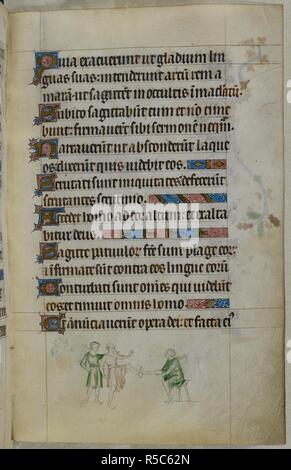 Quia exacuerunt ut gladium lin
guas suas: intenderunt arcũ rem a
marã ut sagittẽt in occultis ĩmaclatũ.
Subito sagittabũt eum et nõ time
bunt: firmaverũt sibi sermonẽ neq̃m.
Narraverũt ut absconderẽt laque
os: dixerũt quis videbit eos.
Scrutati sunt iniquitates: defecerũt
scrutantes scrutinio.
Accedet homo ad cor altum: et exalta
bitur deus.
Sagitte parvulor̃ fc̃e sunt plage eor̃:
⁊ infirmate sũt contra eos lingue eorũ
Conturbati sunt omĩes qui videbãt
eos: et timuit omnis homo.
Et ãnũciaverũt opera dei: et facta ei᾽
alamy
R5C62N